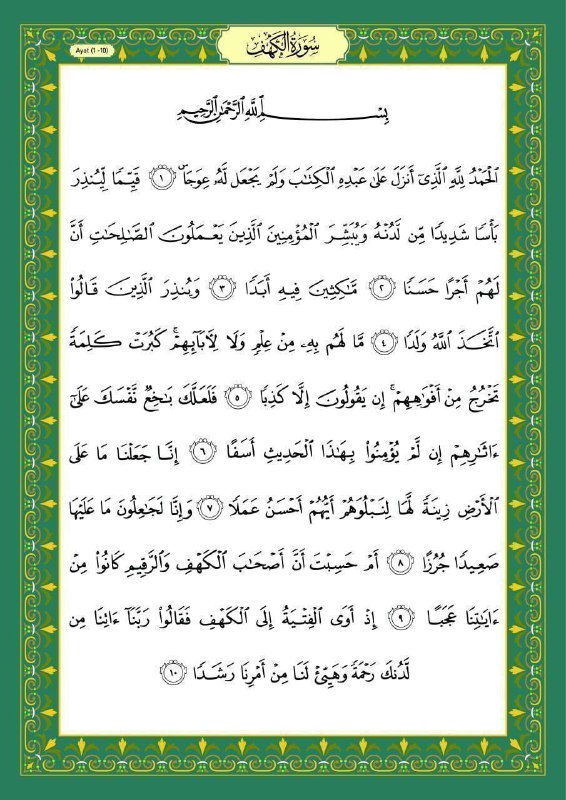 سُورَةُ الكَهْفِ
Ayat (1 -10)
بِسْمِ ٱللَّهِ ٱلرَّحْمَٰنِ ٱلرَّحِيمِ
ٱلْحَمْدُ لِلَّهِ ٱلَّذِىٓ أَنزَلَ عَلَىٰ عَبْدِهِ ٱلْكِتَٰبَ وَلَمْ يَجْعَل لَّهُۥ عِوَجَاۜ ١ قَيِّمًا لِّيُنذِرَ
بَأْسًا شَدِيدًا مِّن لَّدُنْهُ وَيُبَشِّرَ ٱلْمُؤْمِنِينَ ٱلَّذِينَ يَعْمَلُونَ ٱلصَّٰلِحَٰتِ أَنَّ
لَهُمْ أَجْرًا حَسَنًا ٢ مَّٰكِثِينَ فِيهِ أَبَدًا ٣ وَيُنذِرَ ٱلَّذِينَ قَالُوا۟
ٱتَّخَذَ ٱللَّهُ وَلَدًا ٤ مَّا لَهُم بِهِۦ مِنْ عِلْمٍ وَلَا لِأَبَآئِهِمْ ۚ كَبُرَتْ كَلِمَةً
تَخْرُجُ مِنْ أَفْوَٰهِهِمْ ۚ إِن يَقُولُونَ إِلَّا كَذِبًا ٥ فَلَعَلَّكَ بَٰخِعٌ نَّفْسَكَ عَلَىٰٓ
ءَاثَٰرِهِمْ إِن لَّمْ يُؤْمِنُوا۟ بِهَٰذَا ٱلْحَدِيثِ أَسَفًا ٦ إِنَّا جَعَلْنَا مَا عَلَى
ٱلْأَرْضِ زِينَةً لَّهَا لِنَبْلُوَهُمْ أَيُّهُمْ أَحْسَنُ عَمَلًا ٧ وَإِنَّا لَجَٰعِلُونَ مَا عَلَيْهَا
صَعِيدًا جُرُزًا ٨ أَمْ حَسِبْتَ أَنَّ أَصْحَٰبَ ٱلْكَهْفِ وَٱلرَّقِيمِ كَانُوا۟ مِنْ
ءَايَٰتِنَا عَجَبًا ٩ إِذْ أَوَى ٱلْفِتْيَةُ إِلَى ٱلْكَهْفِ فَقَالُوا۟ رَبَّنَآ ءَاتِنَا مِن
لَّدُنكَ رَحْمَةً وَهَيِّئْ لَنَا مِنْ أَمْرِنَا رَشَدًا ١٠